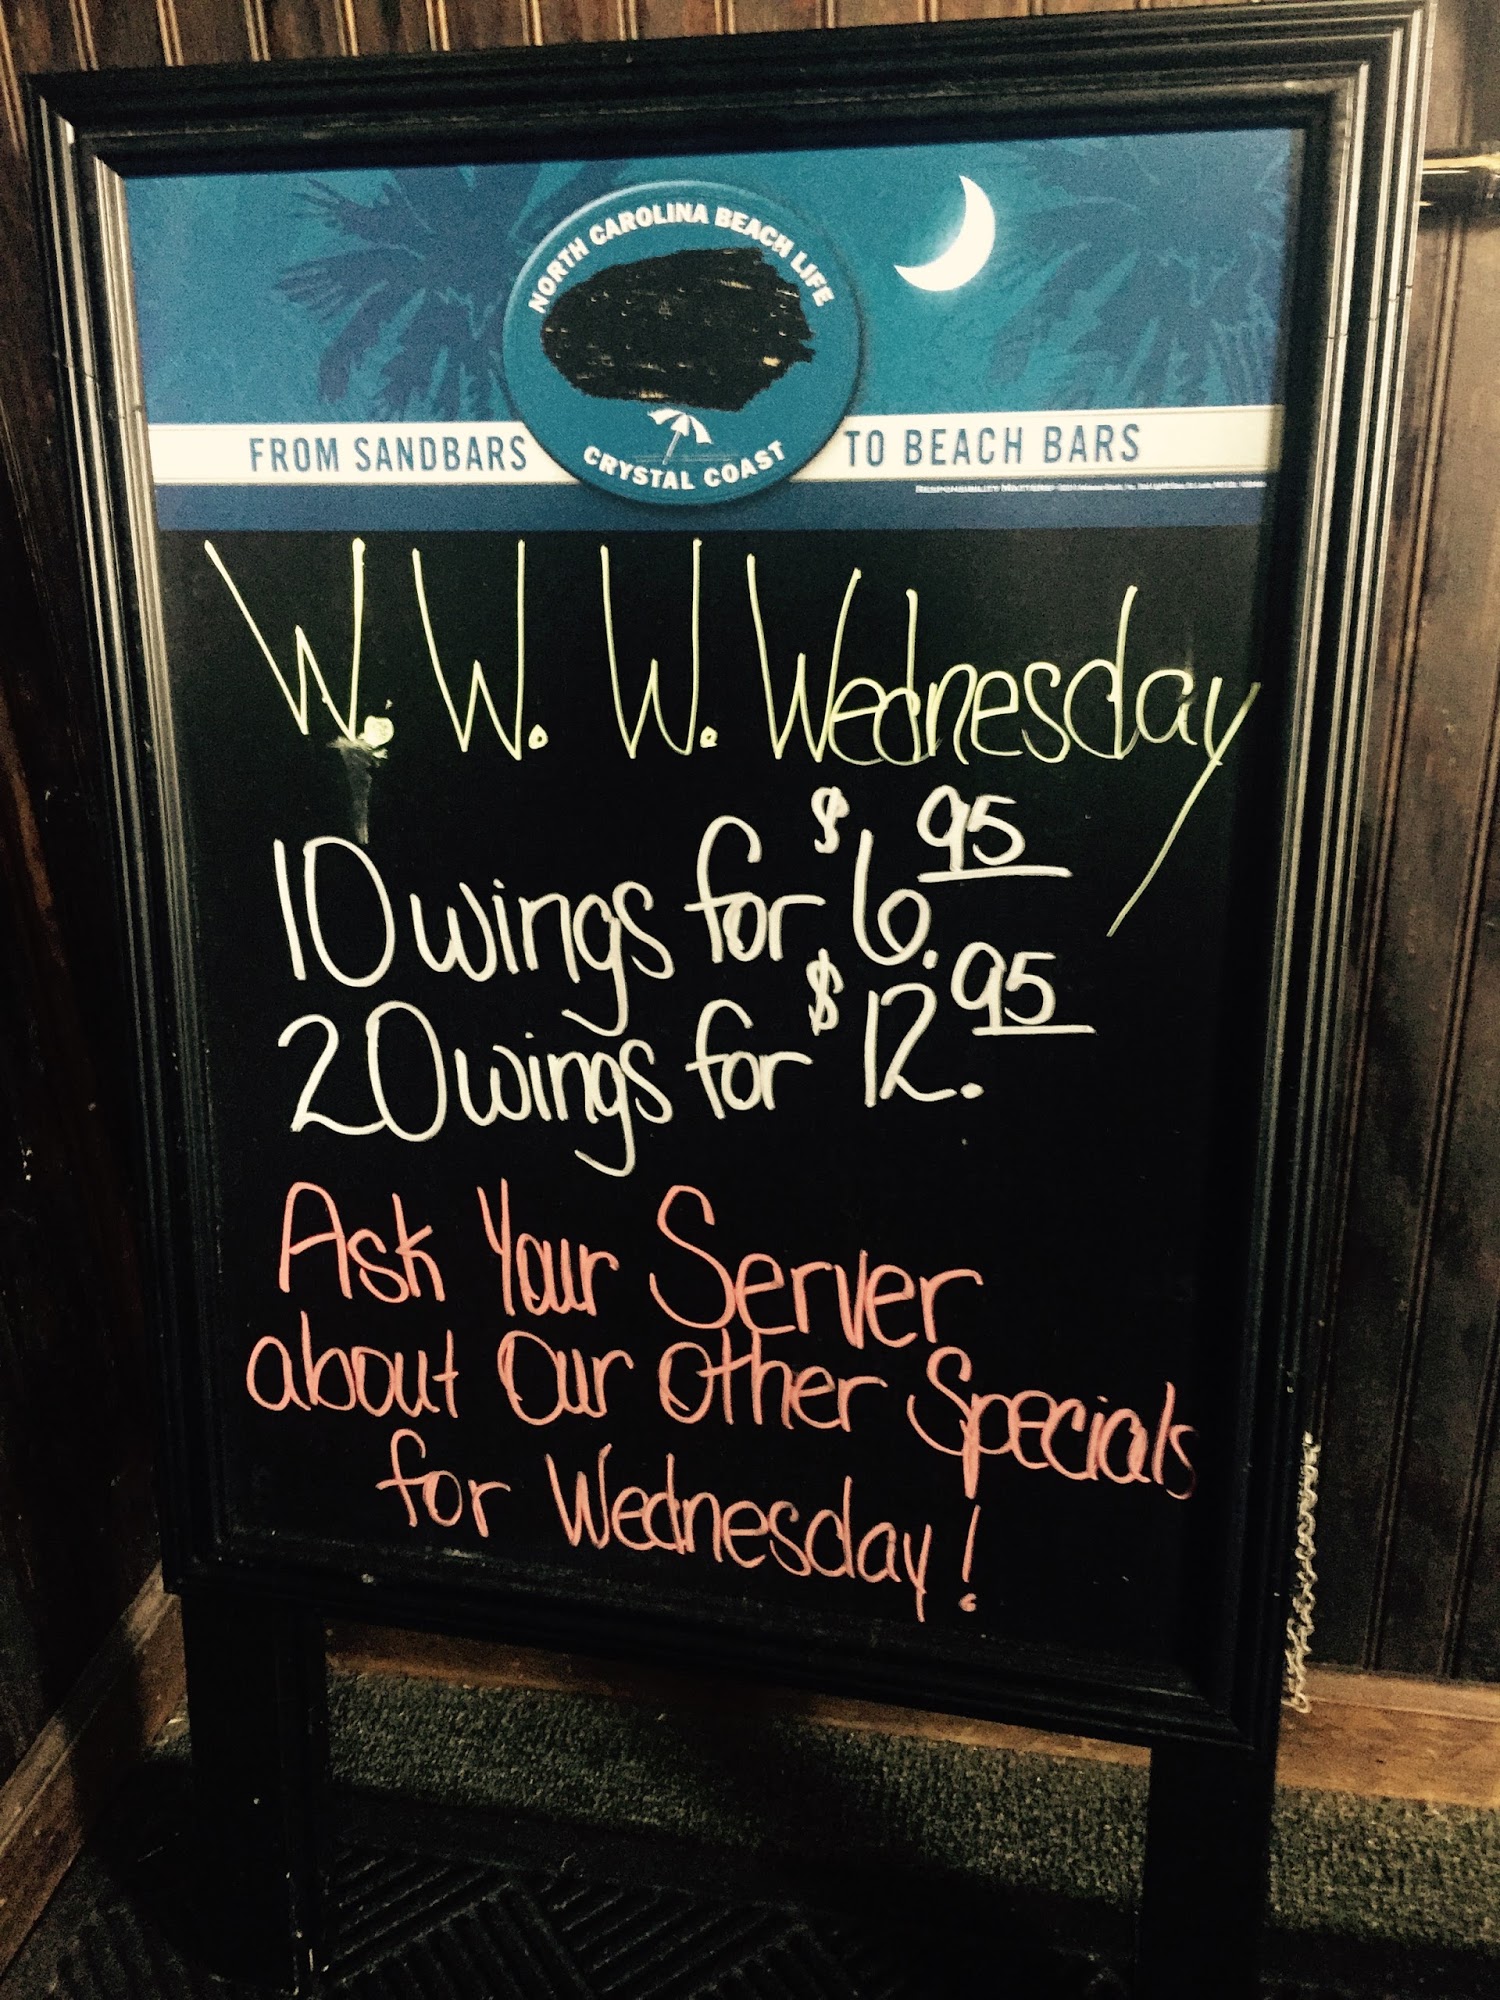 NORTH CAROLINA BEACH LIFE
CRYSTAL COAST
FROM SANDBARS TO BEACH BARS
RESPONSIBILITY MATTERS
W. W. W. Wednesday
10 wings for $6.95
20 wings for $12.95
Ask Your Server
about Our Other Specials
for Wednesday!